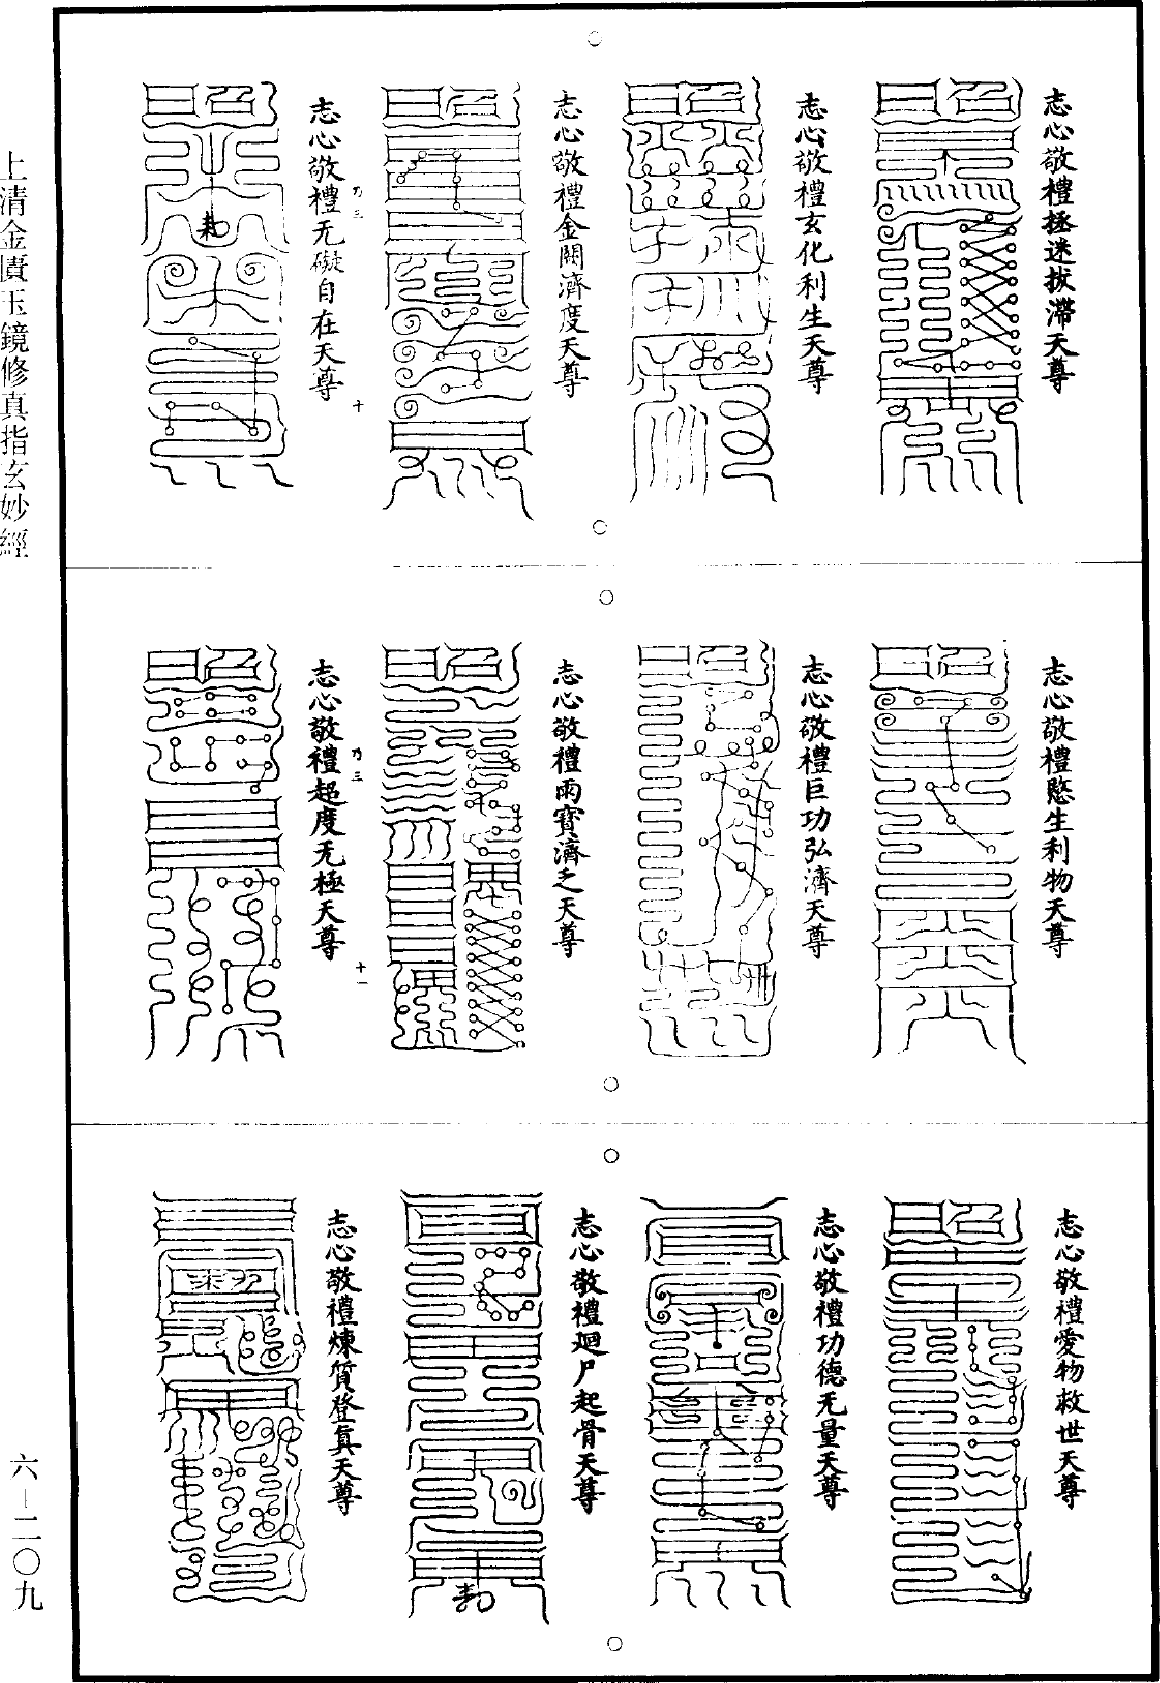 志心敬禮拯迷拔滯天尊
志心敬禮玄化利生天尊
志心敬禮金闕濟度天尊
乃三
十
志心敬禮无礙自在天尊
志心敬禮愍生利物天尊
志心敬禮巨功弘濟天尊
志心敬禮雨寶濟乏天尊
乃三
十一
志心敬禮超度无極天尊
志心敬禮愛物救世天尊
志心敬禮功德无量天尊
志心敬禮迴尸起骨天尊
志心敬禮煉質登真天尊
上清金匱玉鏡修真指玄妙經
六—二〇九